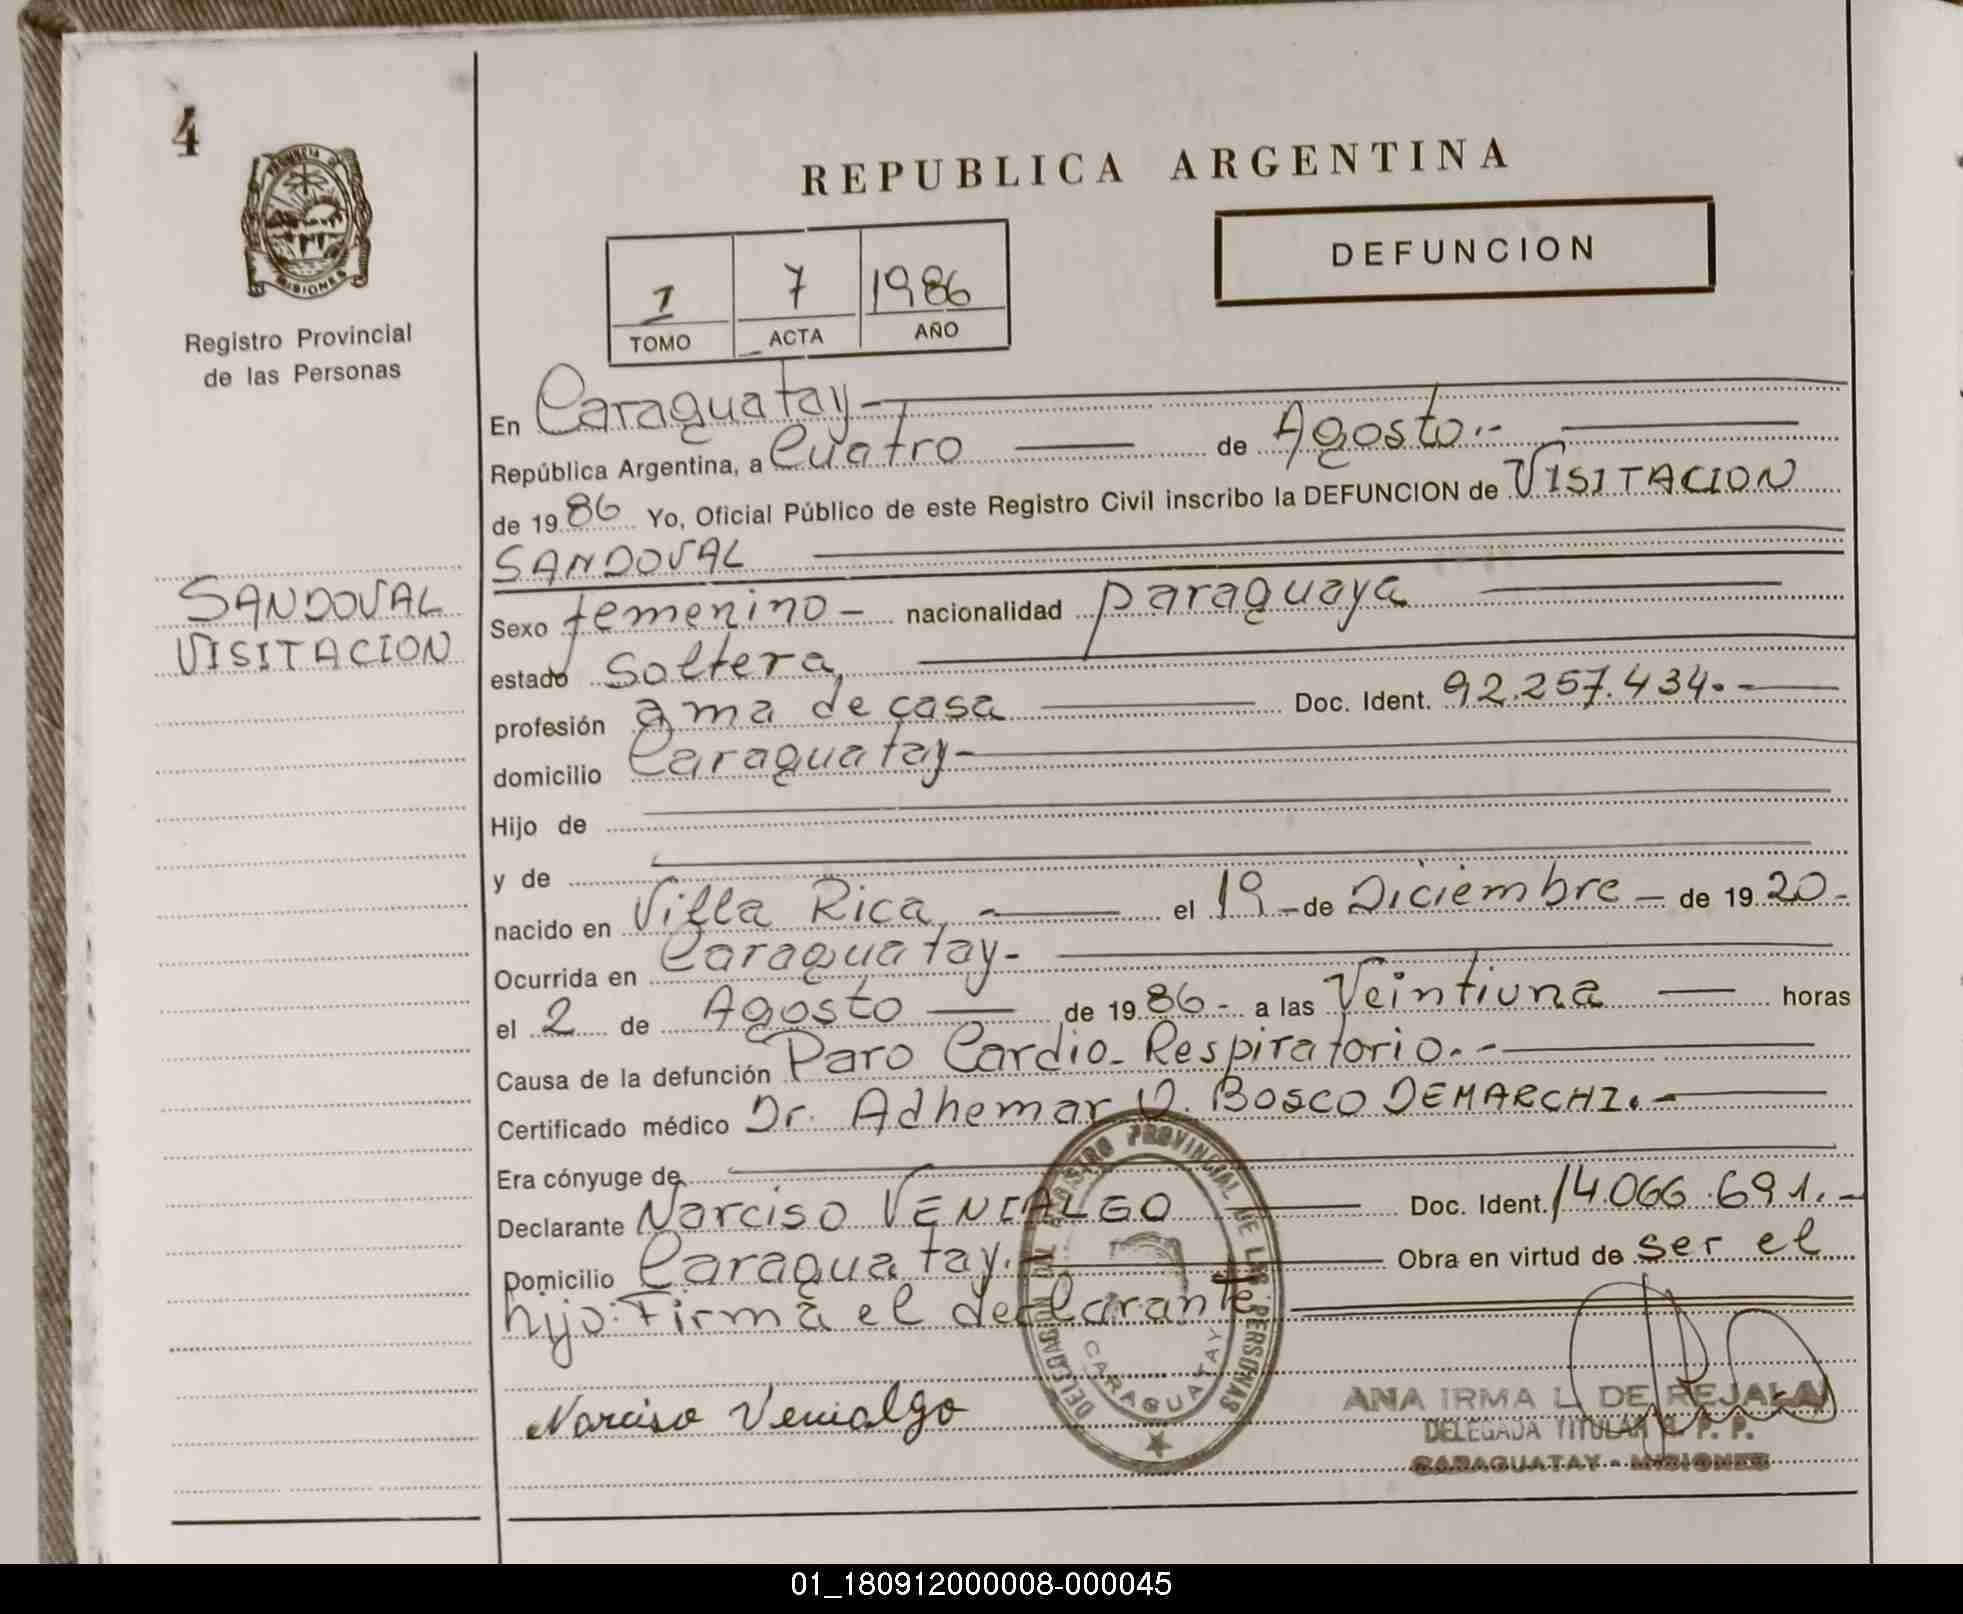 4
PROVINCIA DE
MISIONES
Registro Provincial
de las Personas
SANDOVAL
VISITACION
REPUBLICA ARGENTINA
DEFUNCION
1 7 1986
TOMO ACTA AÑO
En Caraguatay
República Argentina, a Cuatro de Agosto.-
de 1986 Yo, Oficial Público de este Registro Civil inscribo la DEFUNCION de VISITACION
SANDOVAL
Sexo femenino - nacionalidad paraguaya
estado soltera
profesión ama de casa Doc. Ident. 92.257.434.-
domicilio Caraguatay-
Hijo de
y de
nacido en Villa Rica el 19 - de Diciembre - de 1920-
Ocurrida en Caraguatay-
el 2 de Agosto de 1986- a las Veintiuna horas
Causa de la defunción Paro Cardio-Respiratorio.-
Certificado médico Dr. Adhemar D. BOSCO DEMARCHI.-
Era cónyuge de
Declarante Narciso VENIALGO Doc. Ident. 14.066.691.-
Domicilio Caraguatay. Obra en virtud de ser el
hijo: Firma el declarante
Narciso Venialgo
DELEGACION DEL REGISTRO PROVINCIAL DE LAS PERSONAS
CARAGUATAY
ANA IRMA L. DE REJALA
DELEGADA TITULAR R. P. P.
CARAGUATAY - MISIONES
01_180912000008-000045